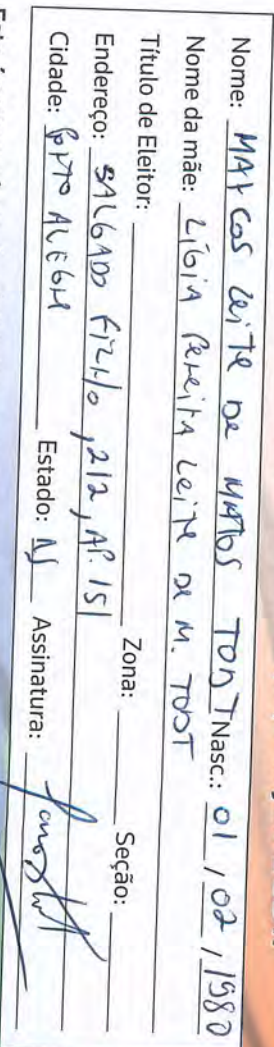 Nome: MARCOS LEITE DE MATTOS TODT Nasc.: 01/02/1980
Nome da mãe: LÍGIA PEREIRA LEITE DE M. TODT
Título de Eleitor: Zona: Seção:
Endereço: SALGADO FILHO, 212, AP. 151
Cidade: PORTO ALEGRE Estado: RS Assinatura: